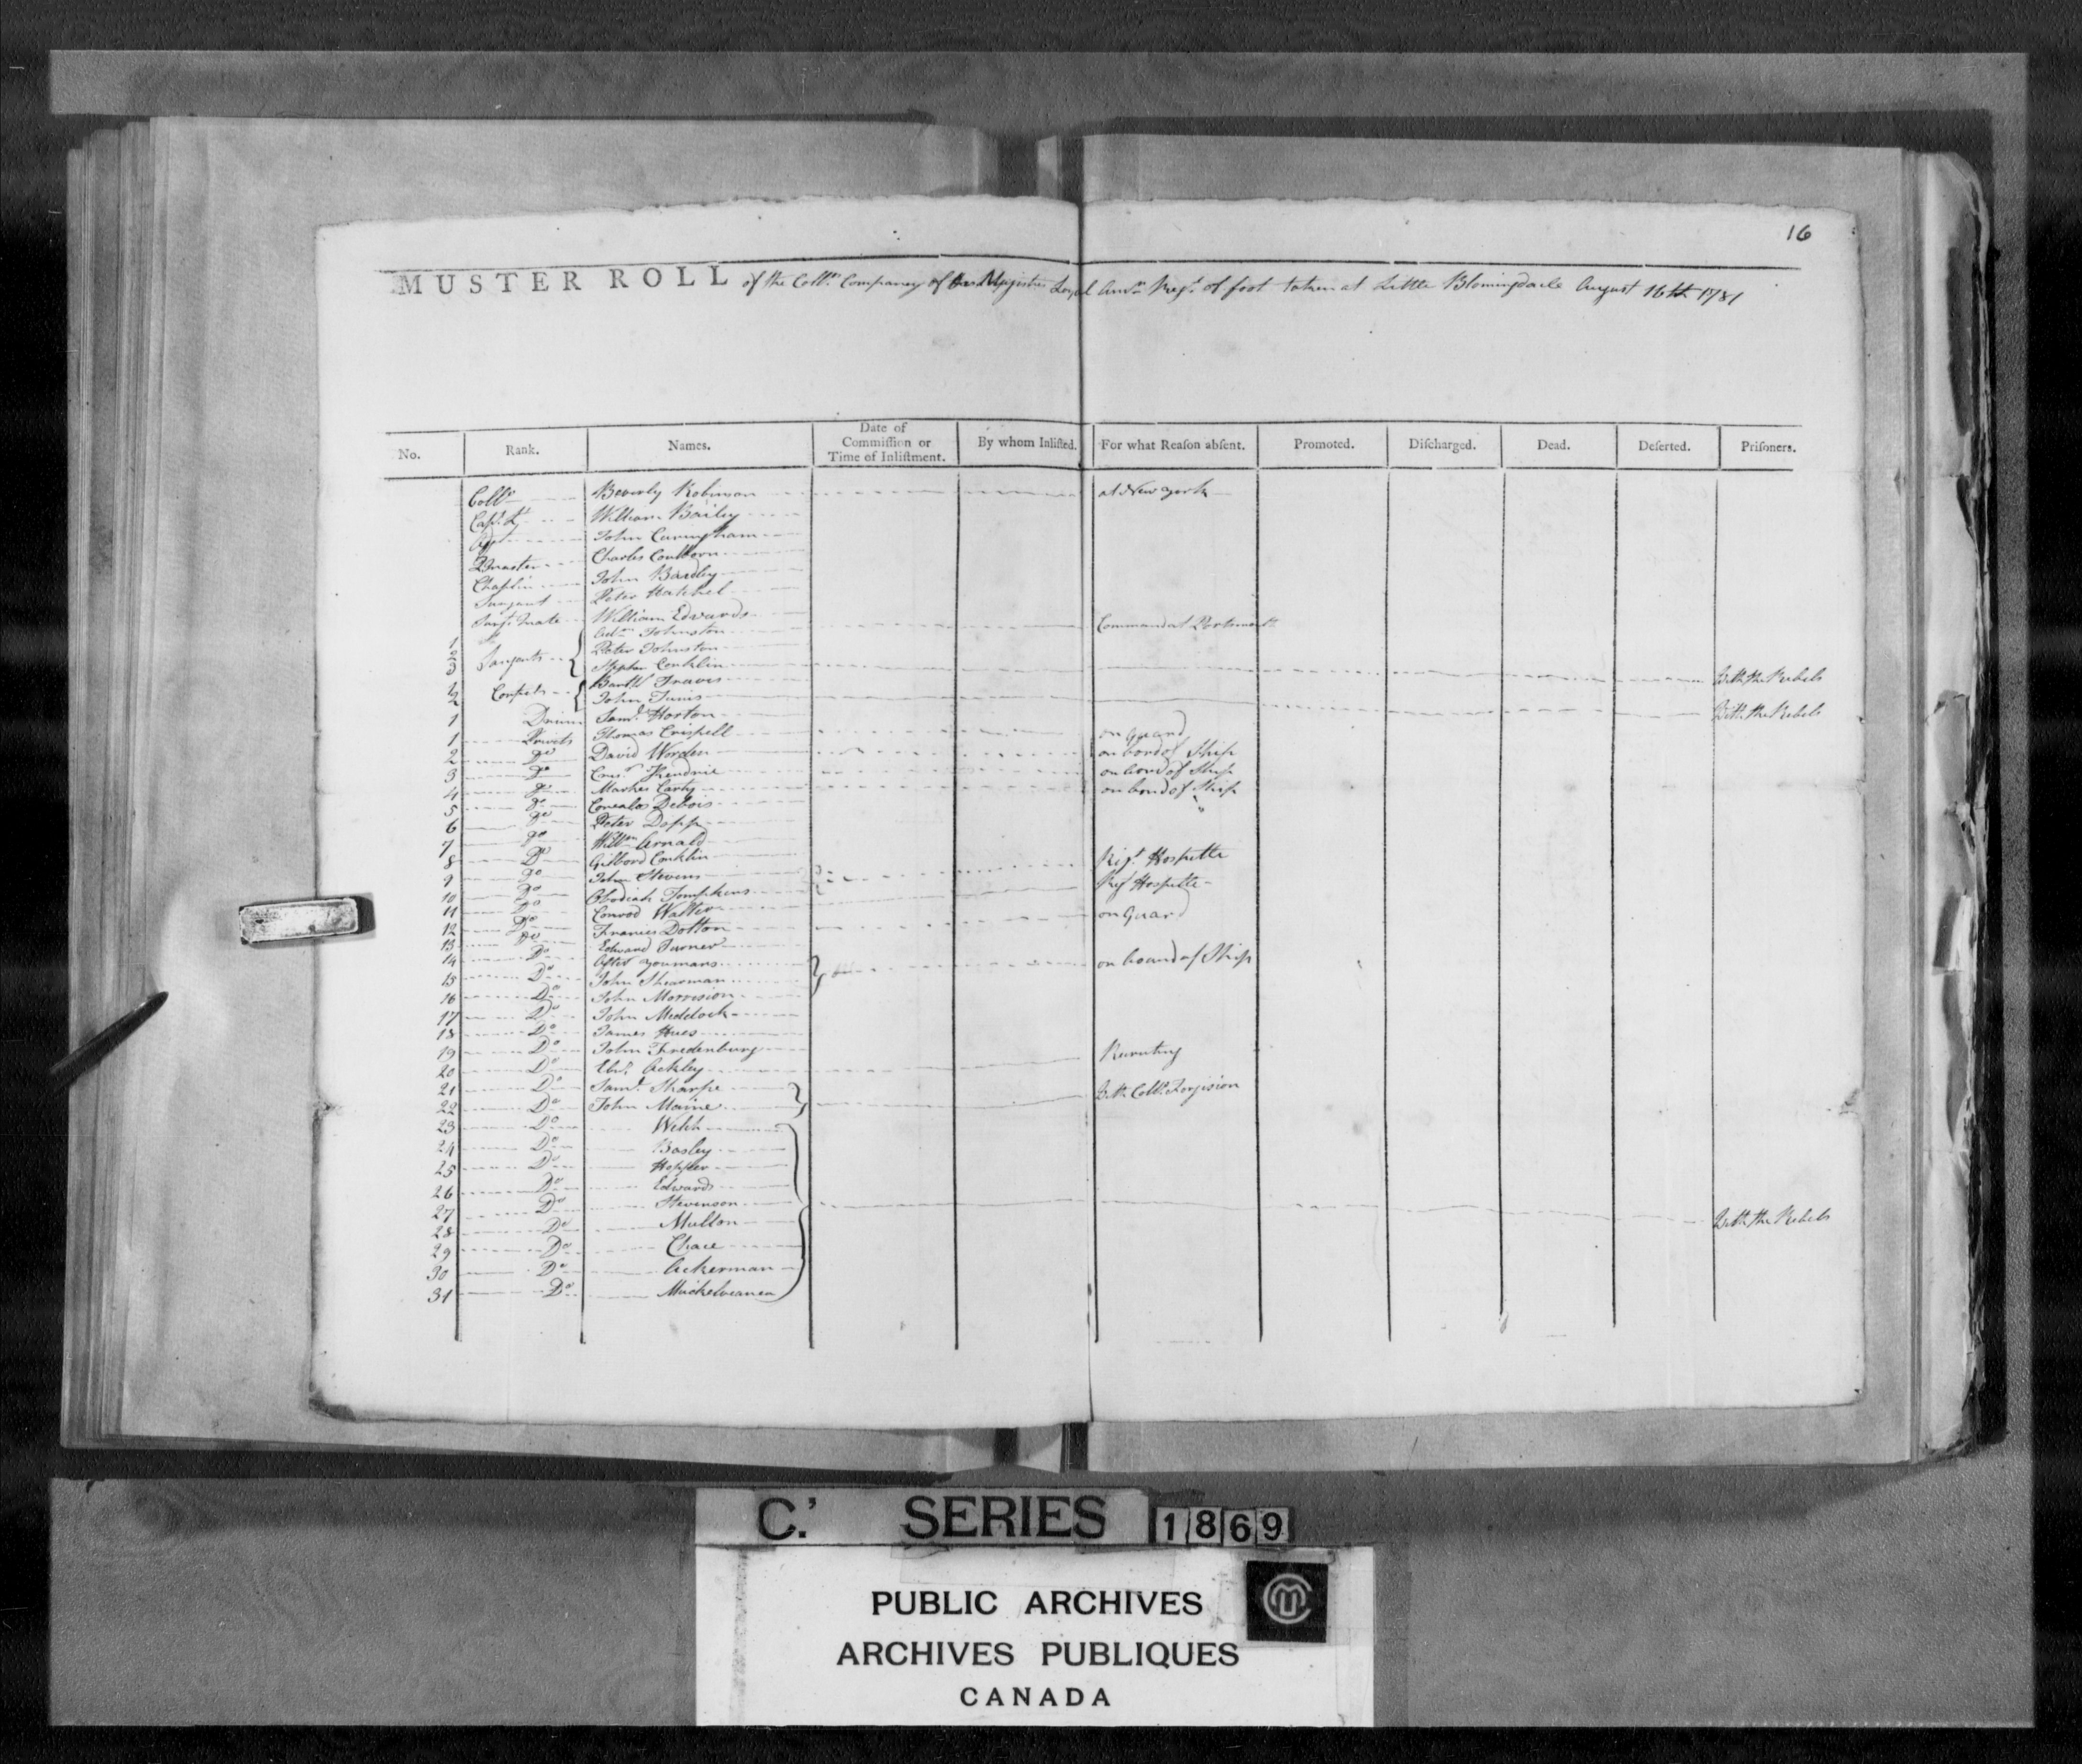 16
MUSTER ROLL of the Coll.s Company of his Majisties Loyal Am.n Reg.t of foot taken at Little Blomingdaile August 16th 1781
No. Rank. Names. Date of Commiſſion or Time of Inliſtment. By whom Inliſted. For what Reaſon abſent. Promoted. Diſcharged. Dead. Deſerted. Priſoners.
Coll.o Beverly Robinson at New york
Cap.t L.t William Bailey
Adjt John Cuningham
Qr master Charles Coulborn
Chaplin John Bardley
Surgent Peter Hatchel
Surg.t Mate William Edwards
1 Ad.m Johnston Command at Portsmouth
2 Sargents Peter Johnston
3 Stephen Conklin
1 Corpels Barth.w Travis With the Rebels
2 John Tunis
1 Drum Sam.l Horton With the Rebels
1 Privets Thomas Crispell on Guard
2 Do David Worden on bord of Ship
3 Do Hendrie on bord of Ship
4 Do Markes Carty on bord of Ship
5 Do Cornealos Debois
6 Do Peter Dopp
7 Do Will.m Arnald
8 Do Gilbord Conklin Rig.t Hospittle
9 Do John Stevens
10 Do Obodiah Tompkens Reg.t Hospittle
11 Do Conrod Walter
12 Do Francies Dotton on Guard
13 Do Edward Turner
14 Do youmans
15 Do John Shearman on board of Ship
16 Do John Morrision
17 Do John Meddock
18 Do James Hues
19 Do John Fredenburg
20 Do Eben.r Ackley Recruting
21 Do Sam.l Sharpe
22 Do John Maine With Coll.o
23 Do Welch
24 Do Basley
25 Do Hopper
26 Do Edwards
27 Do Stevenson
28 Do Multon With the Rebels
29 Do Chace
30 Do Ackerman
31 Do
C.' SERIES 1869
PUBLIC ARCHIVES
ARCHIVES PUBLIQUES
CANADA